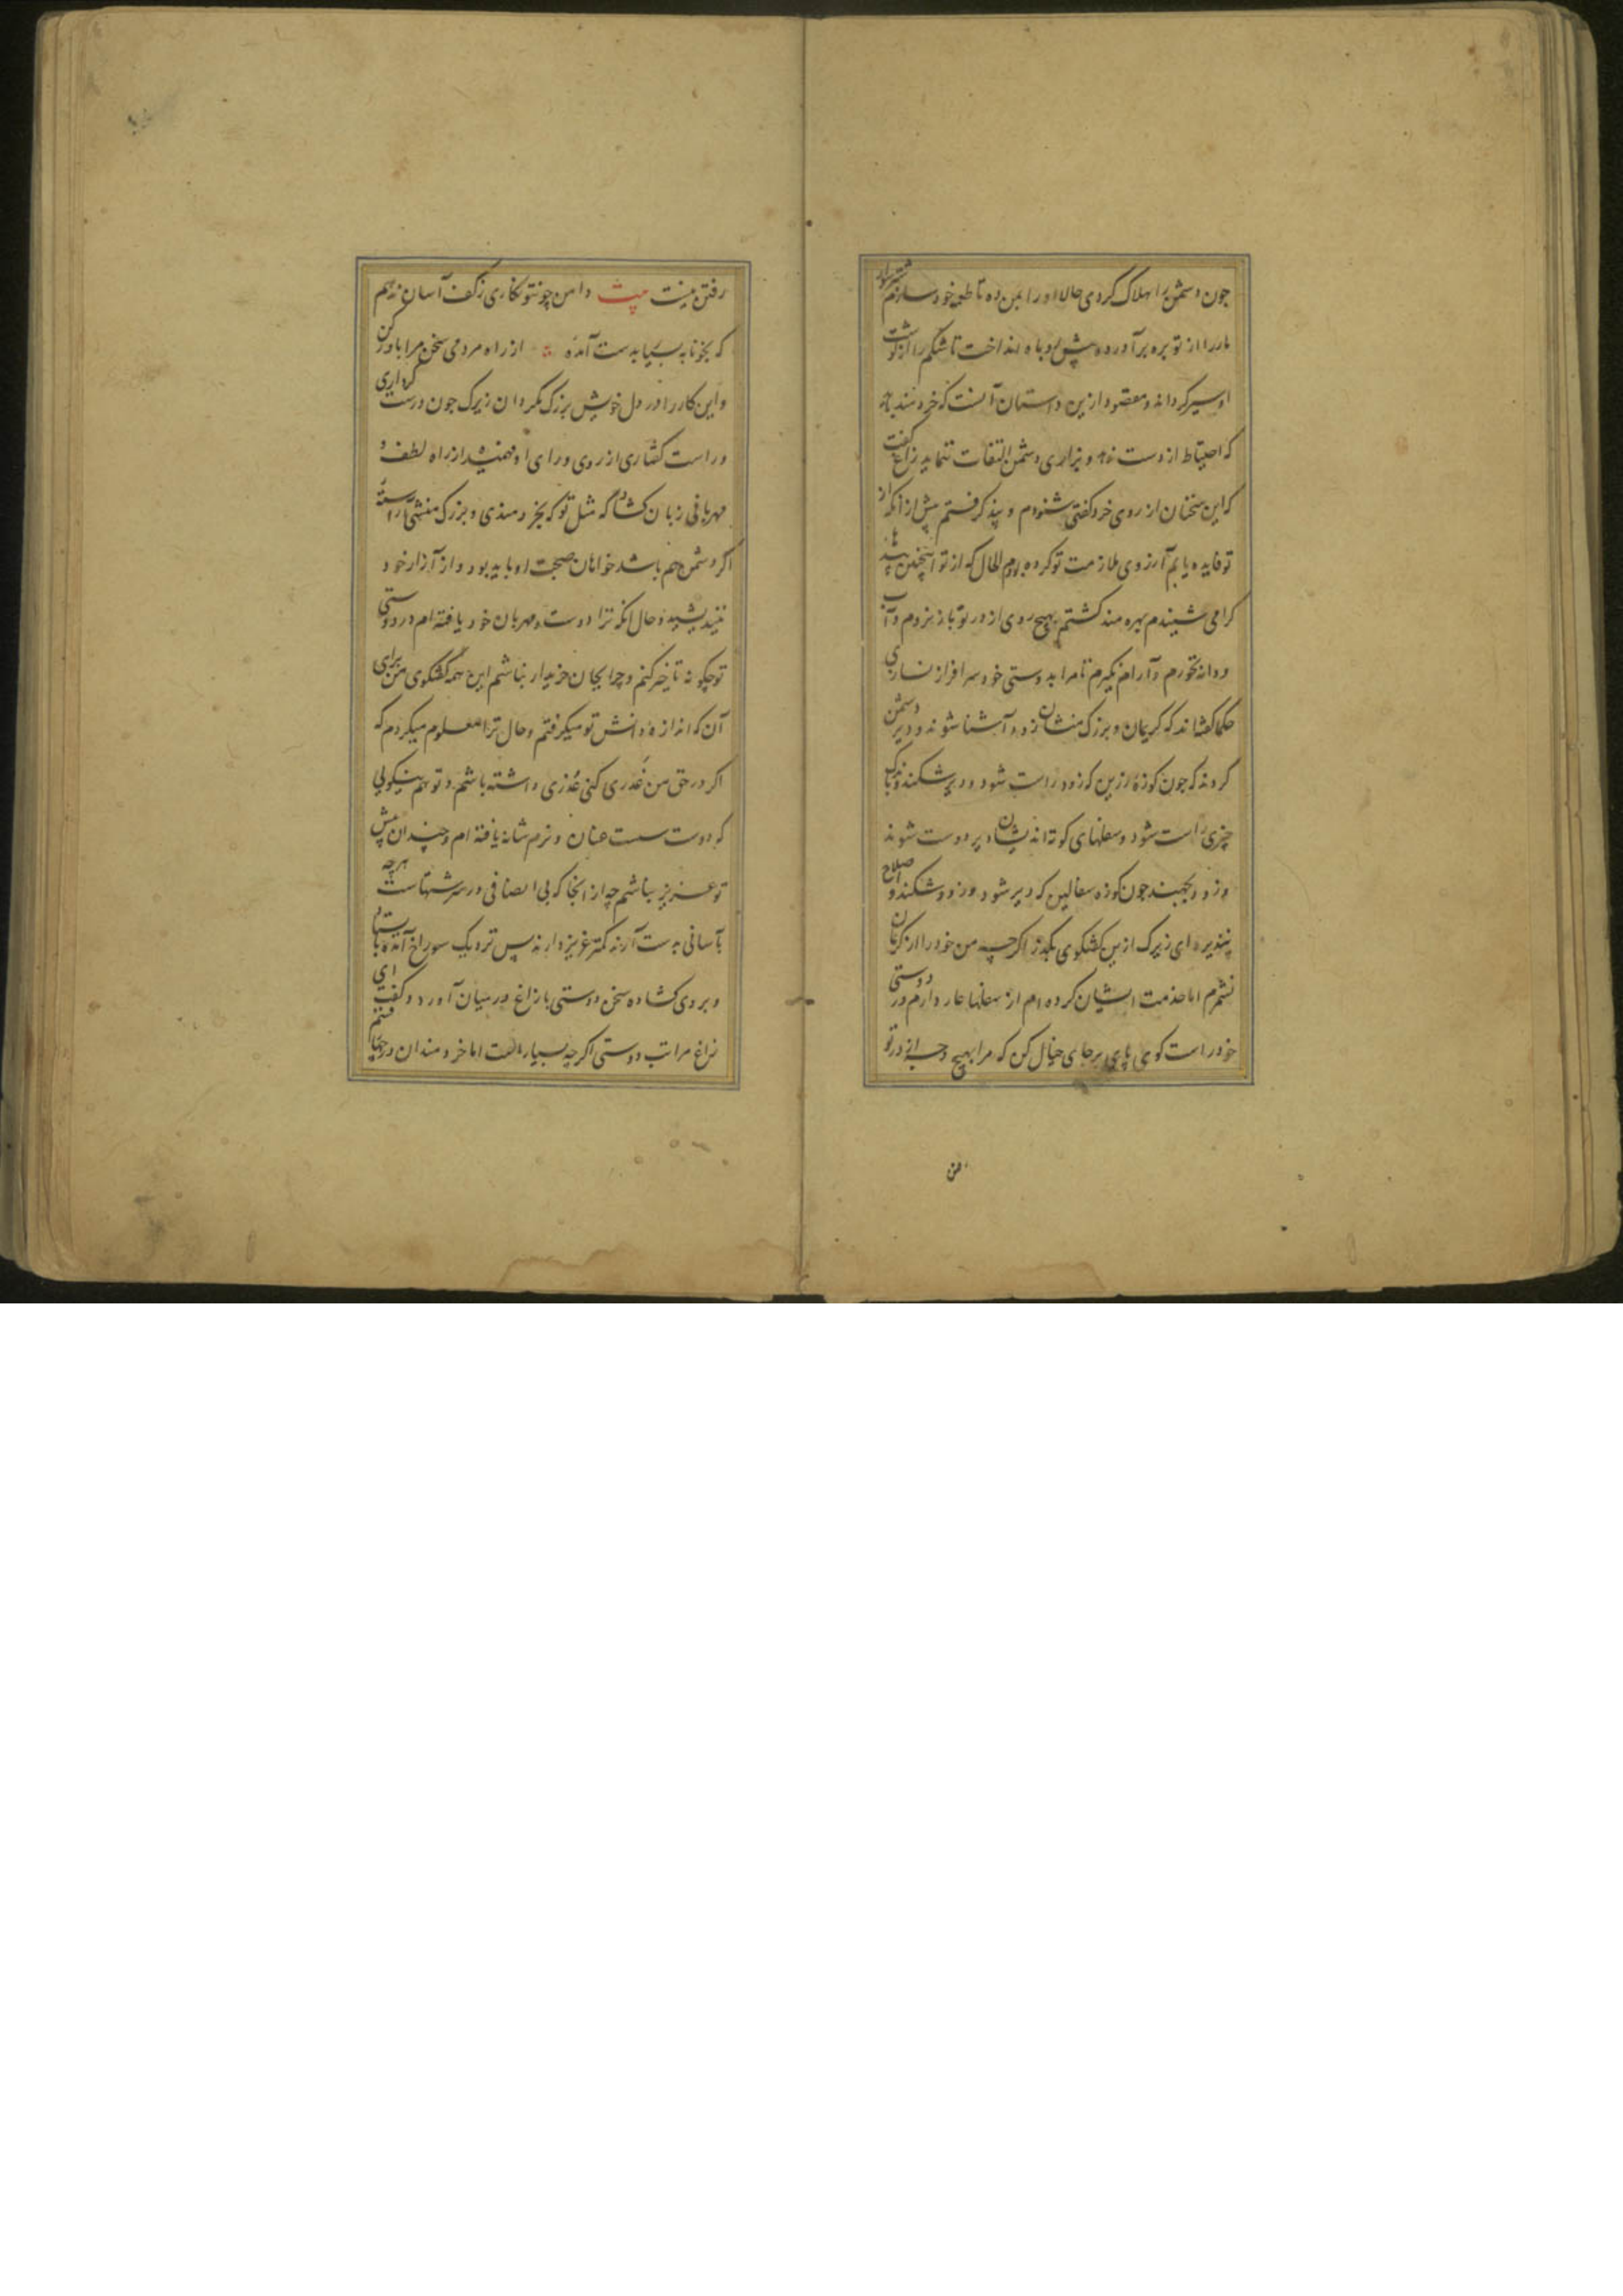 چون دشمن را هلاک کردی حالا او را بمن ده تا طعمه خود سازم شتر سوار
مار را از توبره برآورده پیش روباه انداخت تا شکم را از گوشت
او سیر گرداند و مقصود ازین داستان آنست که خردمند باید
که احتیاط از دست ندهد و بزاری دشمن التفات ننماید زاغ گفت
که این سخنان از روی خرد گفتی شنودم و پند گرفتم پیش از آنکه از
تو فایده یابم آرزوی ملازمت تو کرده بودم الحال که از تو اینچنین پندهای
گرامی شنیدم بهره مند گشتم بهیچ روی از در تو باز نروم و آب
و دانه نخورم و آرام نگیرم تا مرا بدوستی خود سرافراز نسازی
حکما گفته‌اند که کریمان و بزرگ منشان زود آشنا شوند و دیر دشمن
گردند که چون کوزه زرین که زود راست شود و دیر شکند و باندک
چیزی راست شود و سفلهای کوته اندیشان دیر دوست شوند
و زود بجهند چون کوزه سفالین که دیر شود و زود شکند و اصلاح
نپذیرد ای زیرک ازین گفتگوی بگذر اگرچه من خود را از کریمان
نشمرم اما خدمت ایشان کرده ام از سفلها عار دارم در دوستی
خود راست گوی پای برجای خیال کن که مرا بهیچ وجه از در تو
من
رفتن نیست بیت دامن چو نتو نگاری ز کف آسان ندهم
که بخونابه بسیا بدست آمده از راه مردمی سخن مرا باور کن
و این کار را در دل خویش بزرگ مگردان زیرک چون درست کرداری
و راست گفتاری از روی و رای او فهمید از راه لطف و
مهربانی زبان گشاد که مثل تو که بخردمندی و بزرگ منشی آراسته
اگر دشمن هم باشد خواهان صحبت او باید بود و از آزار خود
نیندیشید و حال آنکه ترا دوست و مهربان خود یافته ام در دوستی
تو چگونه تاخیر کنم و چرا بجان خریدار نباشم این همه گفتگوی من برای
آن که اندازه دانش تو میگرفتم و حال ترا معلوم میکردم که
اگر در حق من غدری کنی عذری داشته باشم و تو هم نگویی
که دوست سست عنان و نرم شانه یافته ام و چندان پیش
تو عزیز نباشم چه از آنجا که بی انصافی در سرشتهاست هرچه
بآسانی بدست آرند کمتر عزیز دارند پس نزدیک سوراخ آمده بایستاد
و بروی گشاده سخن دوستی با زاغ در میان آورد و گفت ای
زاغ مراتب دوستی اگرچه بسیار است اما خردمندان در